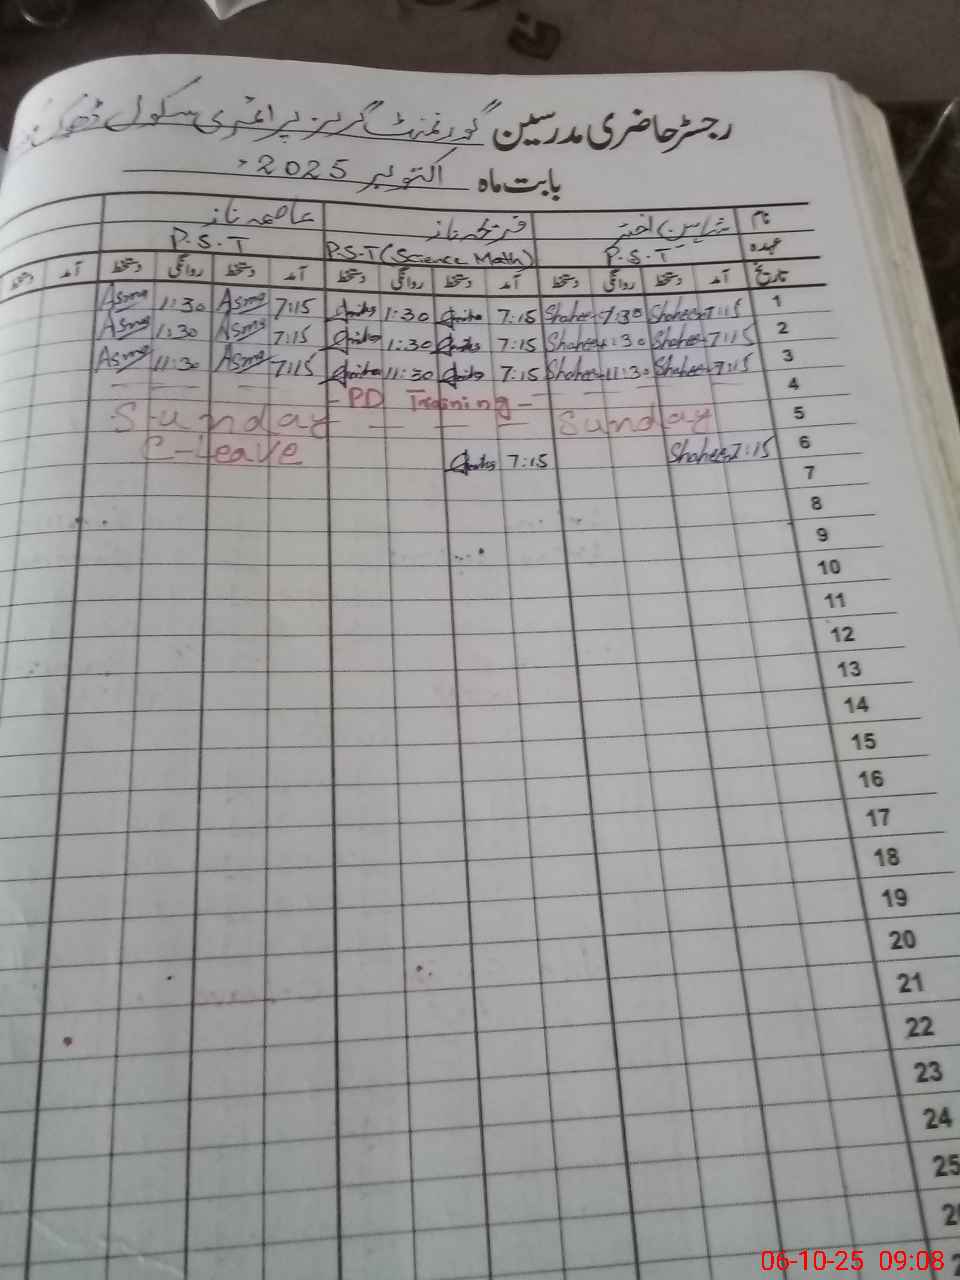 رجسٹر حاضری مدرسین گورنمنٹ گرلز پرائمری سکول
بابت ماہ اکتوبر 2025ء
نام شاہین اختر ناز عاصمہ ناز
عہدہ P.S.T P.S.T (Science Math) P.S.T
تاریخ آمد دستخط روانگی دستخط آمد دستخط روانگی دستخط آمد دستخط روانگی دستخط آمد دستخط
1 7:15 Shaheen 1:30 Shaheen 7:15 1:30 7:15 Asma 1:30 Asma
2 7:15 Shaheen 1:30 Shaheen 7:15 1:30 7:15 Asma 1:30 Asma
3 7:15 Shaheen 11:30 Shaheen 7:15 11:30 7:15 Asma 11:30 Asma
4 - PD Training -
5 Sunday Sunday
6 7:15 Shaheen 7:15 C-Leave
7
8
9
10
11
12
13
14
15
16
17
18
19
20
21
22
23
24
25
06-10-25 09:08